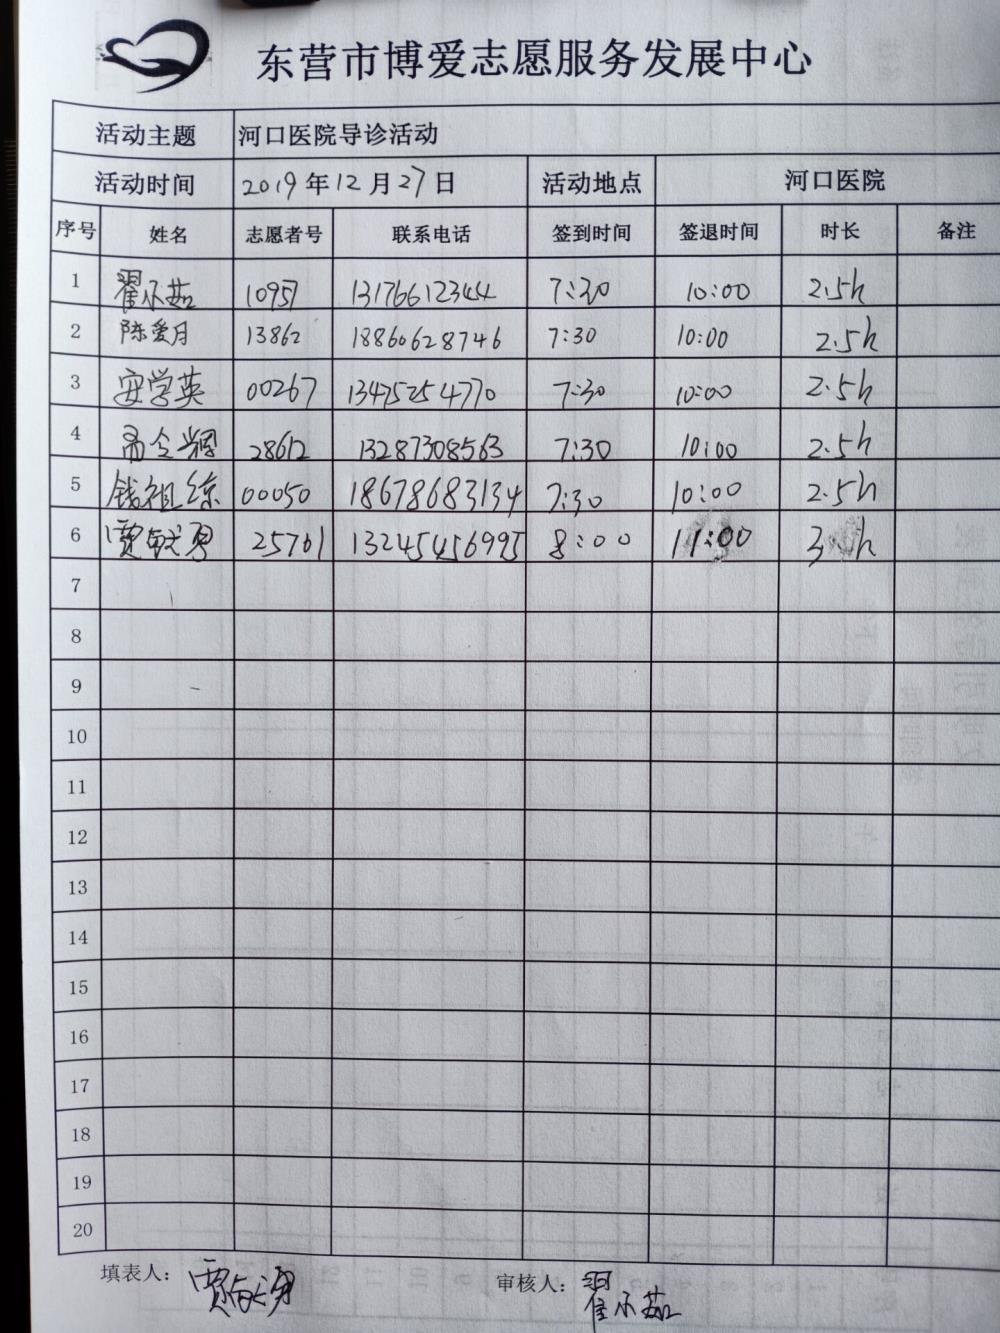 东营市博爱志愿服务发展中心
活动主题 河口医院导诊活动
活动时间 2019年12月27日 活动地点 河口医院
序号 姓名 志愿者号 联系电话 签到时间 签退时间 时长 备注
1 翟尔茹 10957 13176612344 7:30 10:00 2.5h
2 陈爱月 13862 18860628746 7:30 10:00 2.5h
3 安学英 00267 13475254770 7:30 10:00 2.5h
4 28612 13287308563 7:30 10:00 2.5h
5 钱祖综 00050 18678683134 7:30 10:00 2.5h
6 贾 勇 25701 13245456995 8:00 11:00 3 h
7
8
9
10
11
12
13
14
15
16
17
18
19
20
填表人： 贾 勇 审核人： 翟尔茹